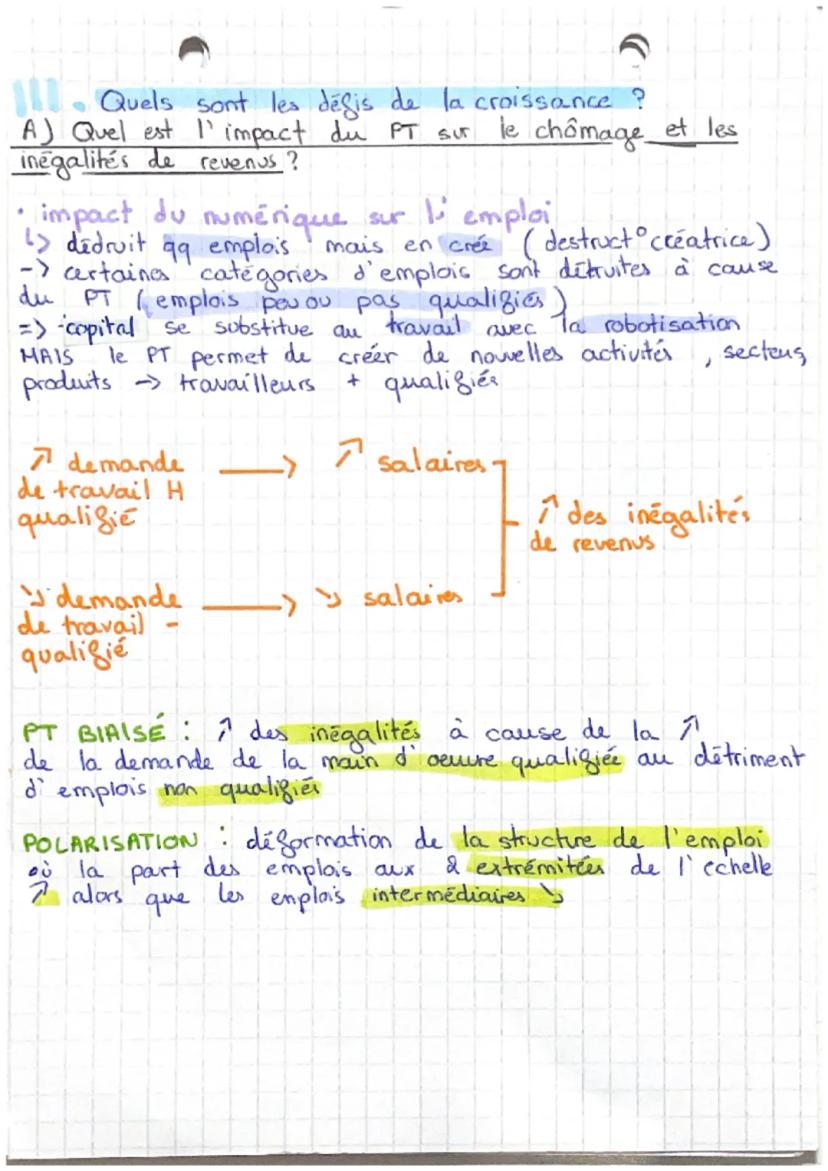 III. Quels sont les défis de la croissance ?
A) Quel est l'impact du PT sur le chômage et les
inégalités de revenus ?
• impact du numérique sur l'emploi
↳ dédruit qq emplois mais en crée (destruct° créatrice)
-> certaines catégories d'emplois sont détruites à cause
du PT (emplois peu ou pas qualifiés)
=> capital se substitue au travail avec la robotisation
MAIS le PT permet de créer de nouvelles activités, secteurs,
produits -> travailleurs + qualifiés
↗ demande ⟶ ↗ salaires
de travail H
qualifié
↗ des inégalités
de revenus
↘ demande ⟶ ↘ salaires
de travail -
qualifié
PT BIAISÉ : ↗ des inégalités à cause de la ↗
de la demande de la main d'oeuvre qualifiée au détriment
d'emplois non qualifiés
POLARISATION : déformation de la structure de l'emploi
où la part des emplois aux 2 extrémitées de l'échelle
↗ alors que les emplois intermédiaires ↘